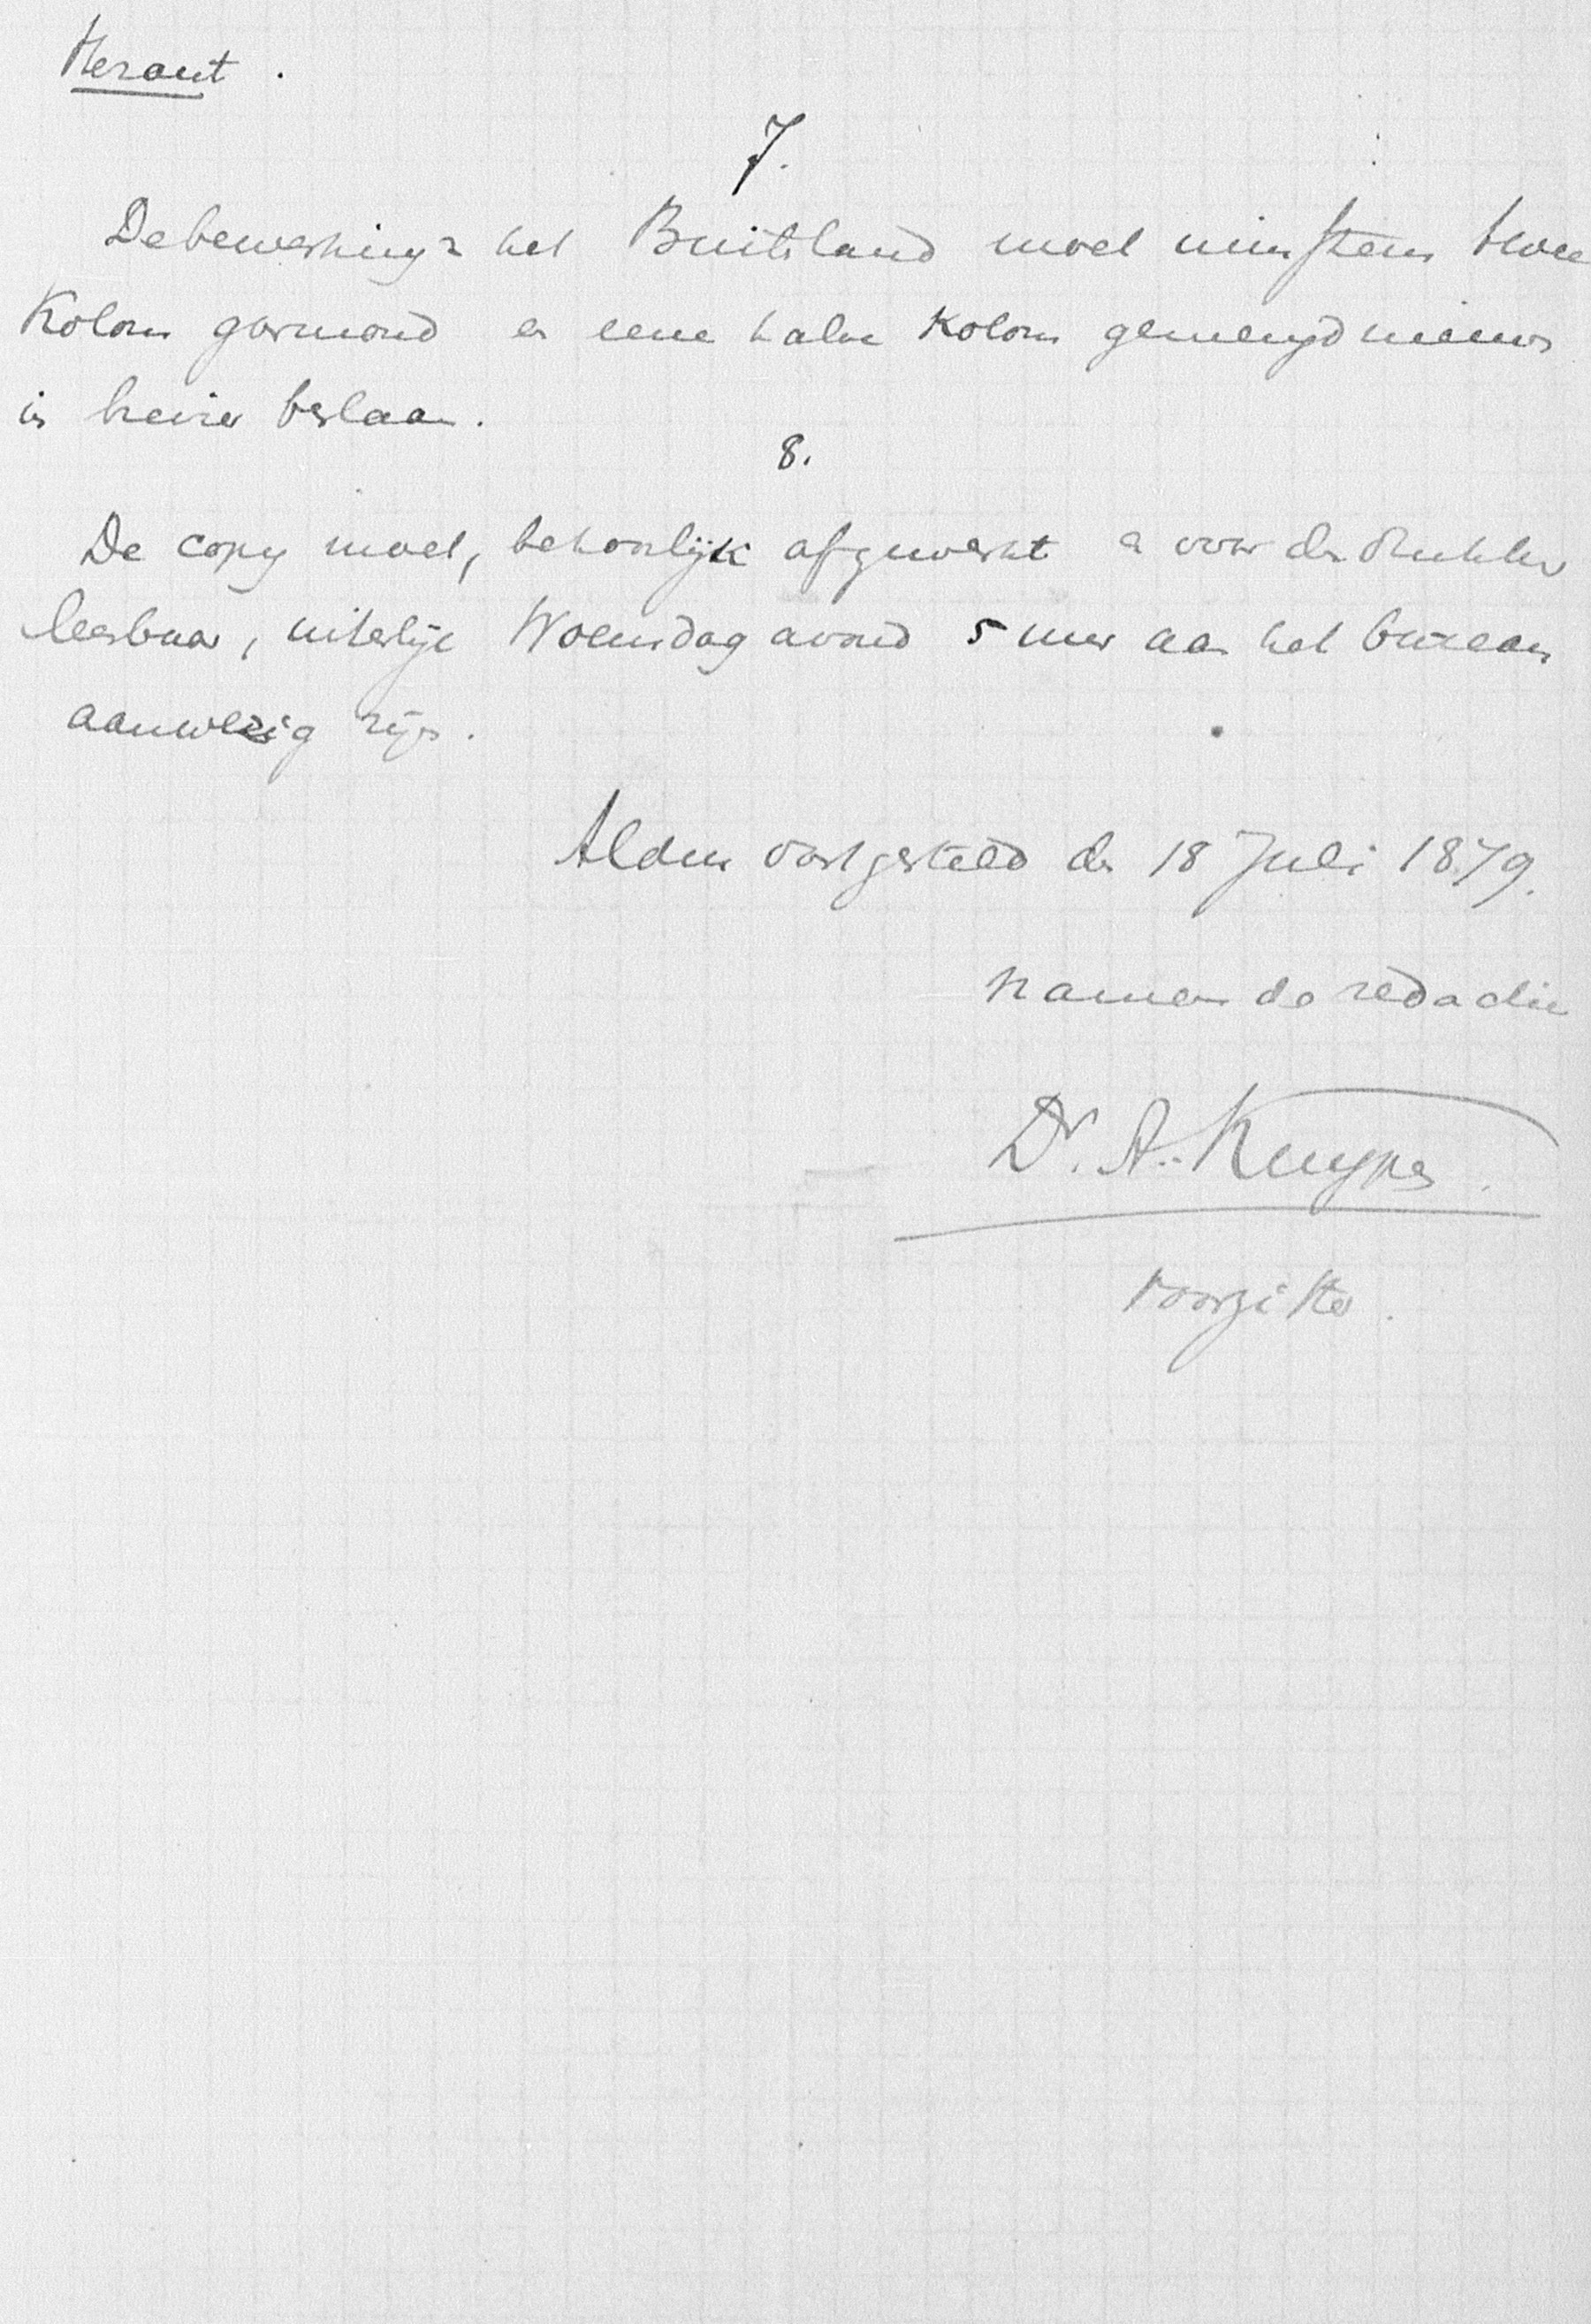 Heraut.
7.
De bewerking v het Buitenland moet minstens twee
Kolom garmond en eene halve Kolom gemengd nieuws
in brevier beslaan.
8.
De copy moet, behoorlijk afgewerkt en voor den drukker
leesbaar, uiterlijk Woensdag avond 5 uur aan het bureau
aanwezig zijn.
Aldus vastgesteld den 18 Juli 1879.
namens de redactie
Dr. A. Kuyper.
voorzitter.